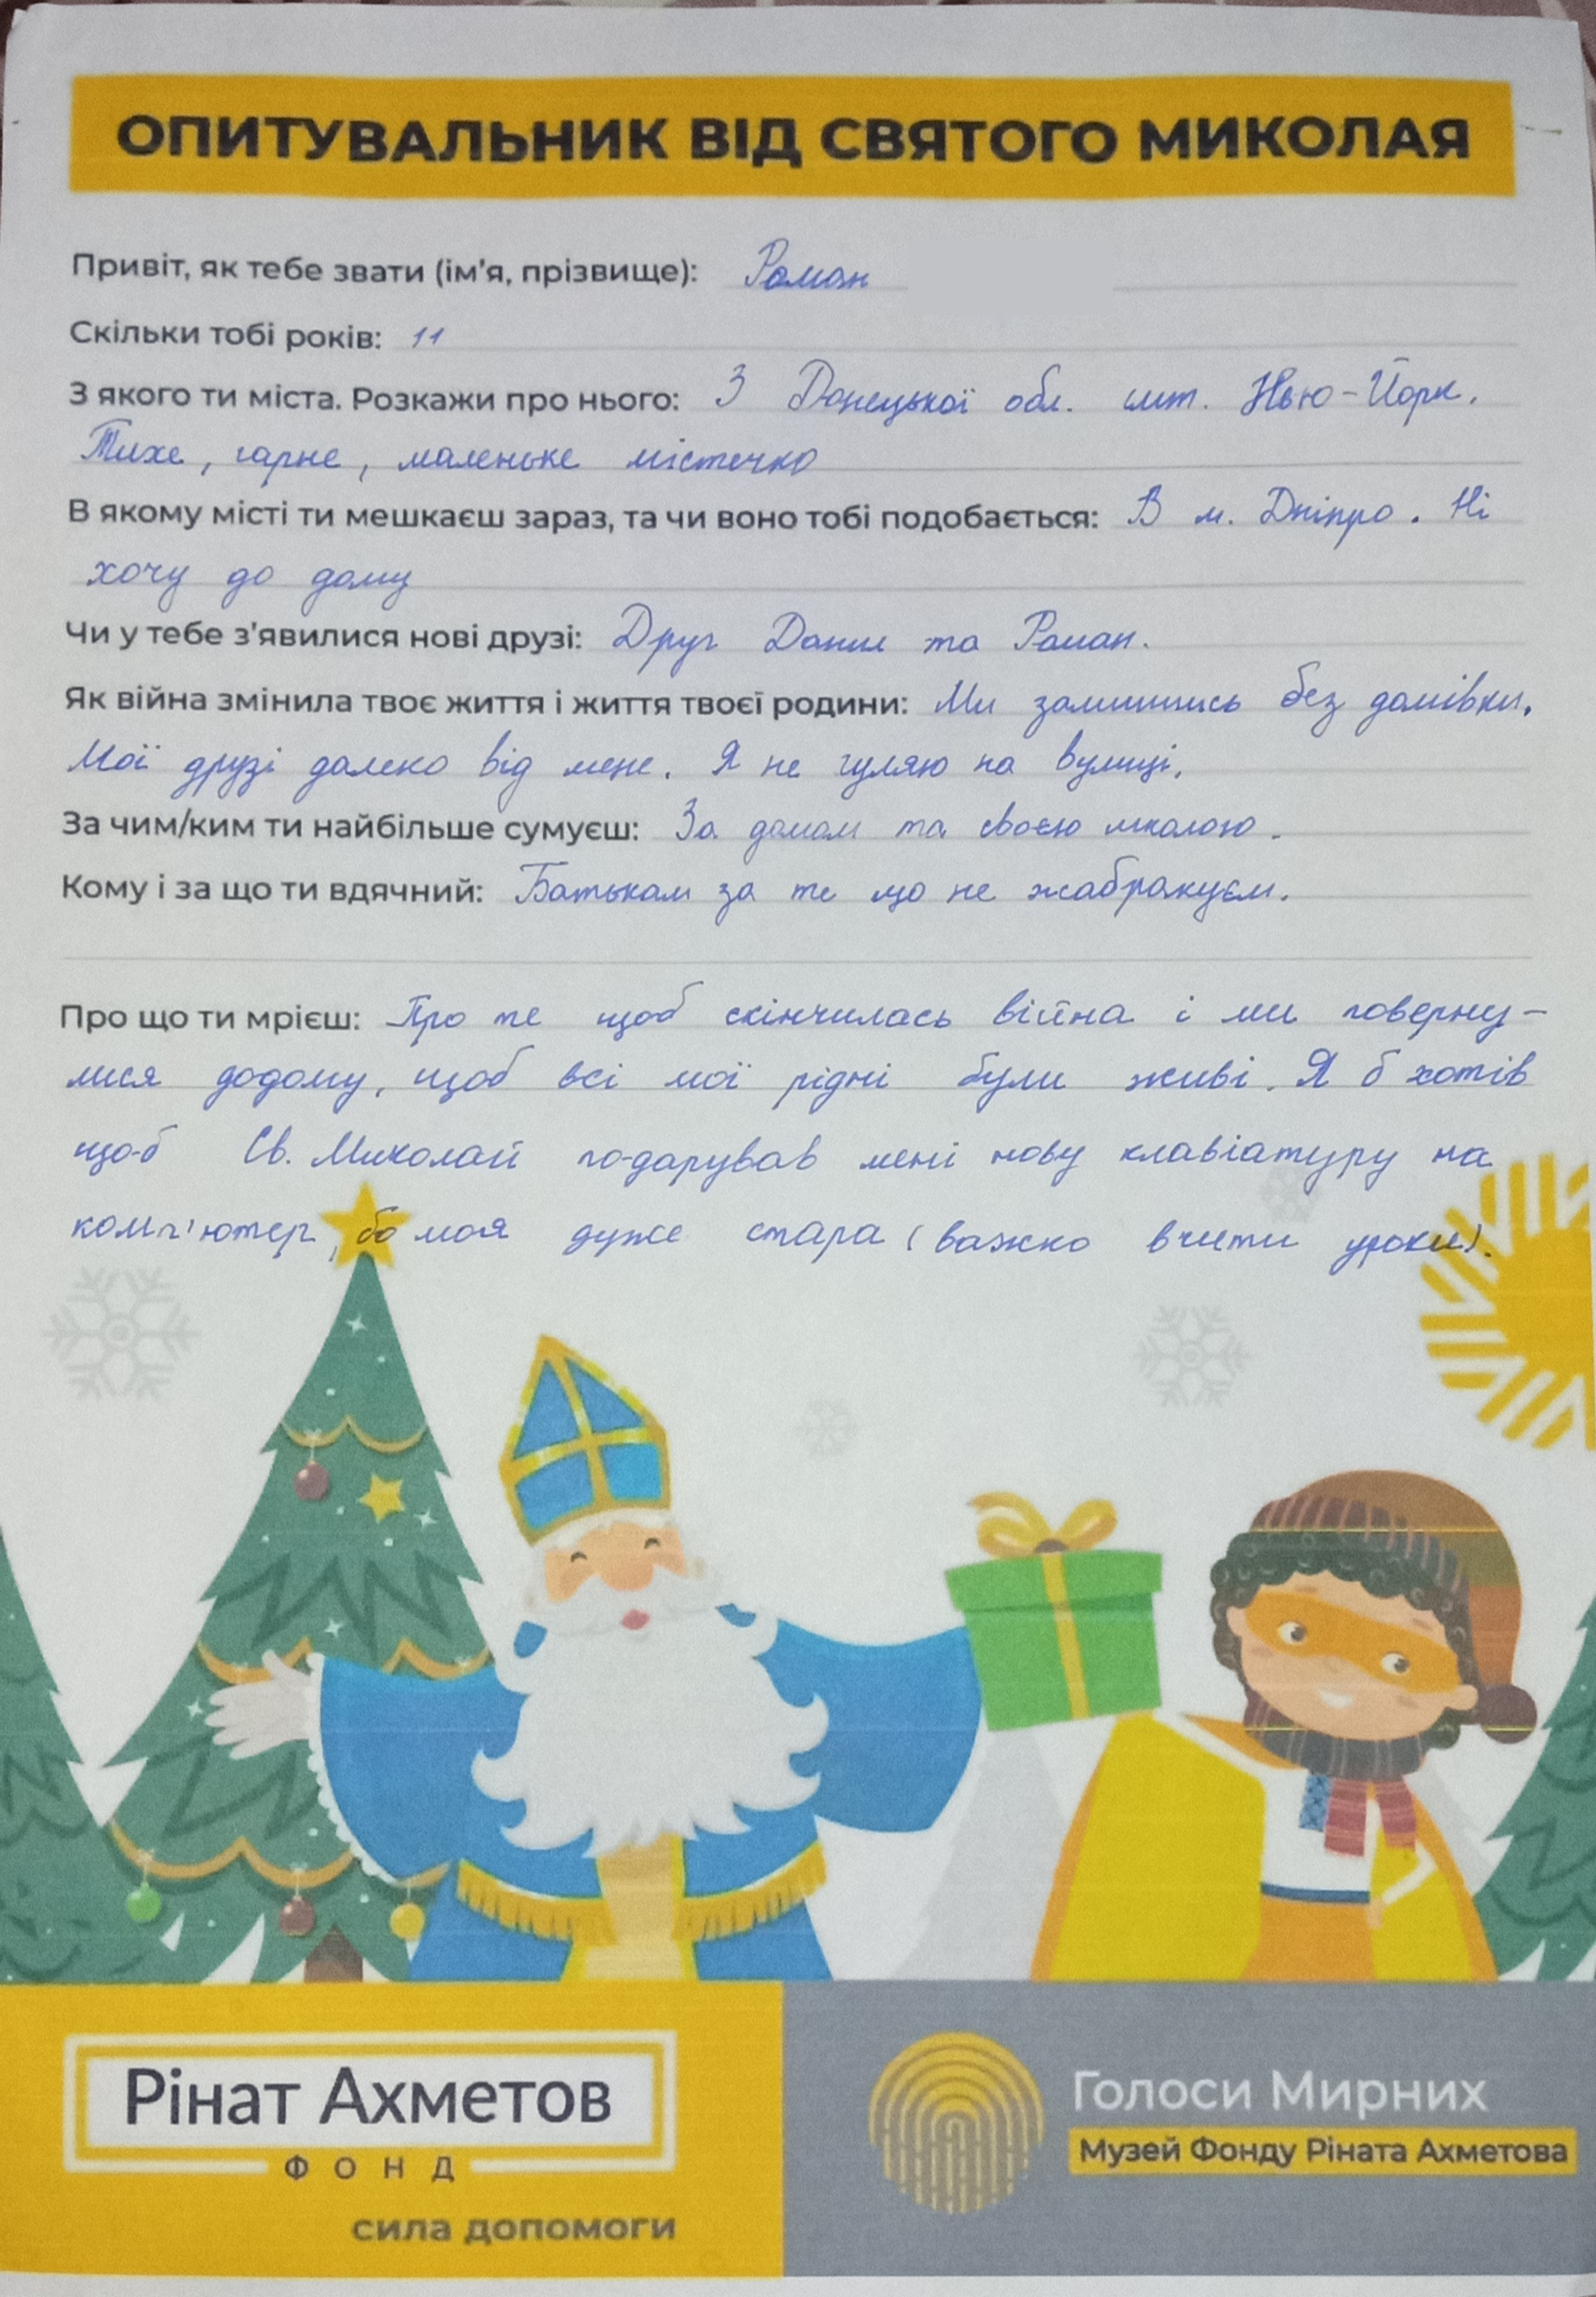 ОПИТУВАЛЬНИК ВІД СВЯТОГО МИКОЛАЯ
Привіт, як тебе звати (ім'я, прізвище): Роман
Скільки тобі років: 11
З якого ти міста. Розкажи про нього: З Донецької обл. смт. Нью-Йорк.
Тихе, гарне, маленьке містечко
В якому місті ти мешкаєш зараз, та чи воно тобі подобається: В м. Дніпро. Ні
хочу до дому
Чи у тебе з'явилися нові друзі: Друг Данил та Роман.
Як війна змінила твоє життя і життя твоєї родини: Ми залишись без домівки.
Мої друзі далеко від мене. Я не гуляю на вулиці.
За чим/ким ти найбільше сумуєш: За домом та своєю школою.
Кому і за що ти вдячний: Батькам за те що не
Про що ти мрієш: Про те щоб скінчилась війна і ми поверну-
лися додому, щоб всі мої рідні були живі. Я б хотів
щоб Св. Миколай подарував мені нову клавіатуру на
комп'ютер, бо моя дуже стара (важко вчити уроки).
Рінат Ахметов
ФОНД
сила допомоги
Голоси Мирних
Музей Фонду Ріната Ахметова